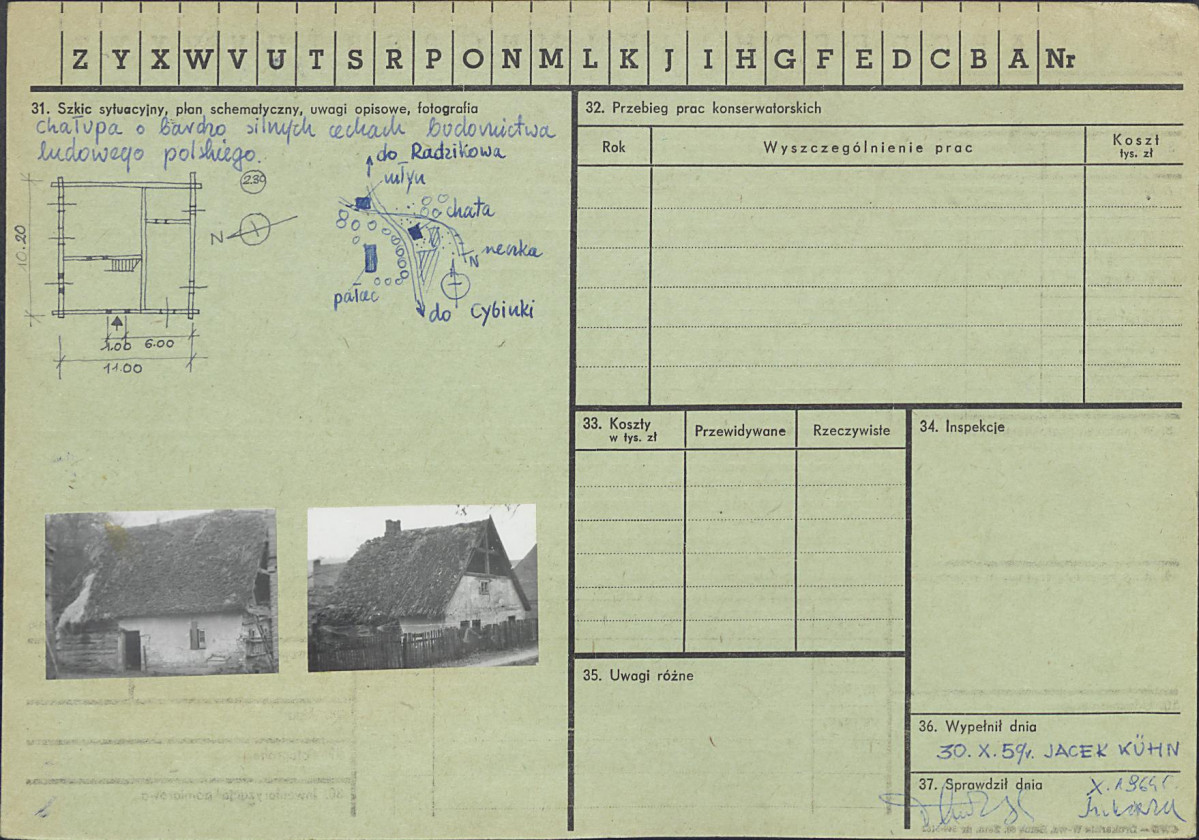 Z Y X W V U T S R P O N M L K J I H G F E D C B A Nr
31. Szkic sytuacyjny, plan schematyczny, uwagi opisowe, fotografia
chałupa o bardzo silnych cechach budownictwa
ludowego polskiego.
do Radzikowa
młyn
2.30
chata
N
rzeczka
N
10.20
pałac
do Cybinki
1.00 6.00
11.00
32. Przebieg prac konserwatorskich
Rok
Wyszczególnienie prac
Koszt
tys. zł
33. Koszty
w tys. zł
Przewidywane
Rzeczywiste
34. Inspekcje
35. Uwagi różne
36. Wypełnił dnia
30. X. 59r. JACEK KÜHN
37. Sprawdził dnia
X. 1964 r.